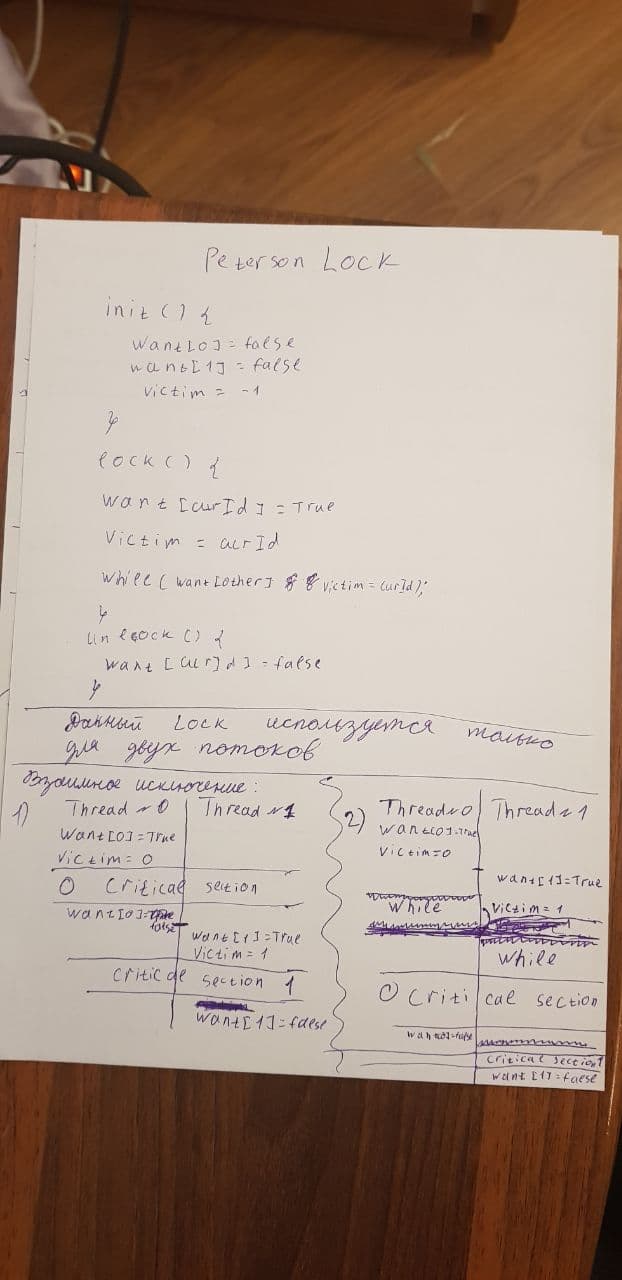 Peterson Lock
init () {
want[0] = false
want[1] = false
victim = -1
}
lock () {
want [curId] = True
Victim = curId
while ( want[other] && victim = curId);
}
unlock () {
want [curId] = false
}
Данный Lock используется только
для двух потоков
Взаимное исключение:
1) Thread ~ 0 Thread ~ 1
Want[0] = True
Victim = 0
0 Critical section
want[0] = false
want[1] = True
Victim = 1
critical section 1
want[1] = false
2) Thread ~ 0 Thread ~ 1
want[0] = True
Victim = 0
want[1] = True
while Victim = 1
while
0 Critical section
want[0] = false
critical section 1
want [1] = false